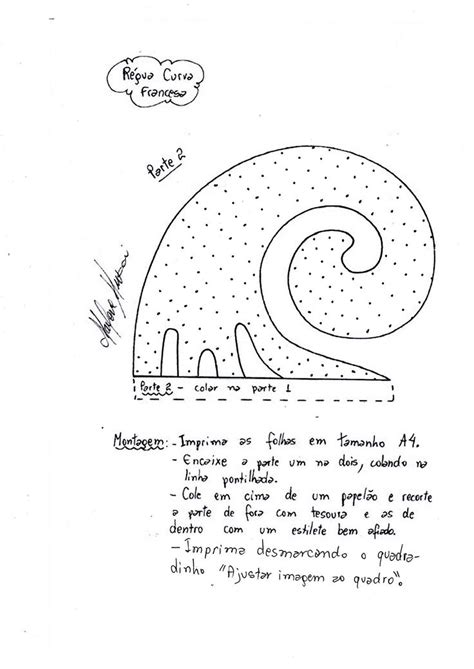 Régua Curva
Francesa
Parte 2
Parte 2 - colar na parte 1
Montagem: - Imprima as folhas em tamanho A4.
- Encaixe a parte um na dois, colando na
linha pontilhada.
- Cole em cima de um papelão e recorte
a parte de fora com tesoura e as de
dentro com um estilete bem afiado.
- Imprima desmarcando o quadra-
dinho "Ajustar imagem ao quadro".